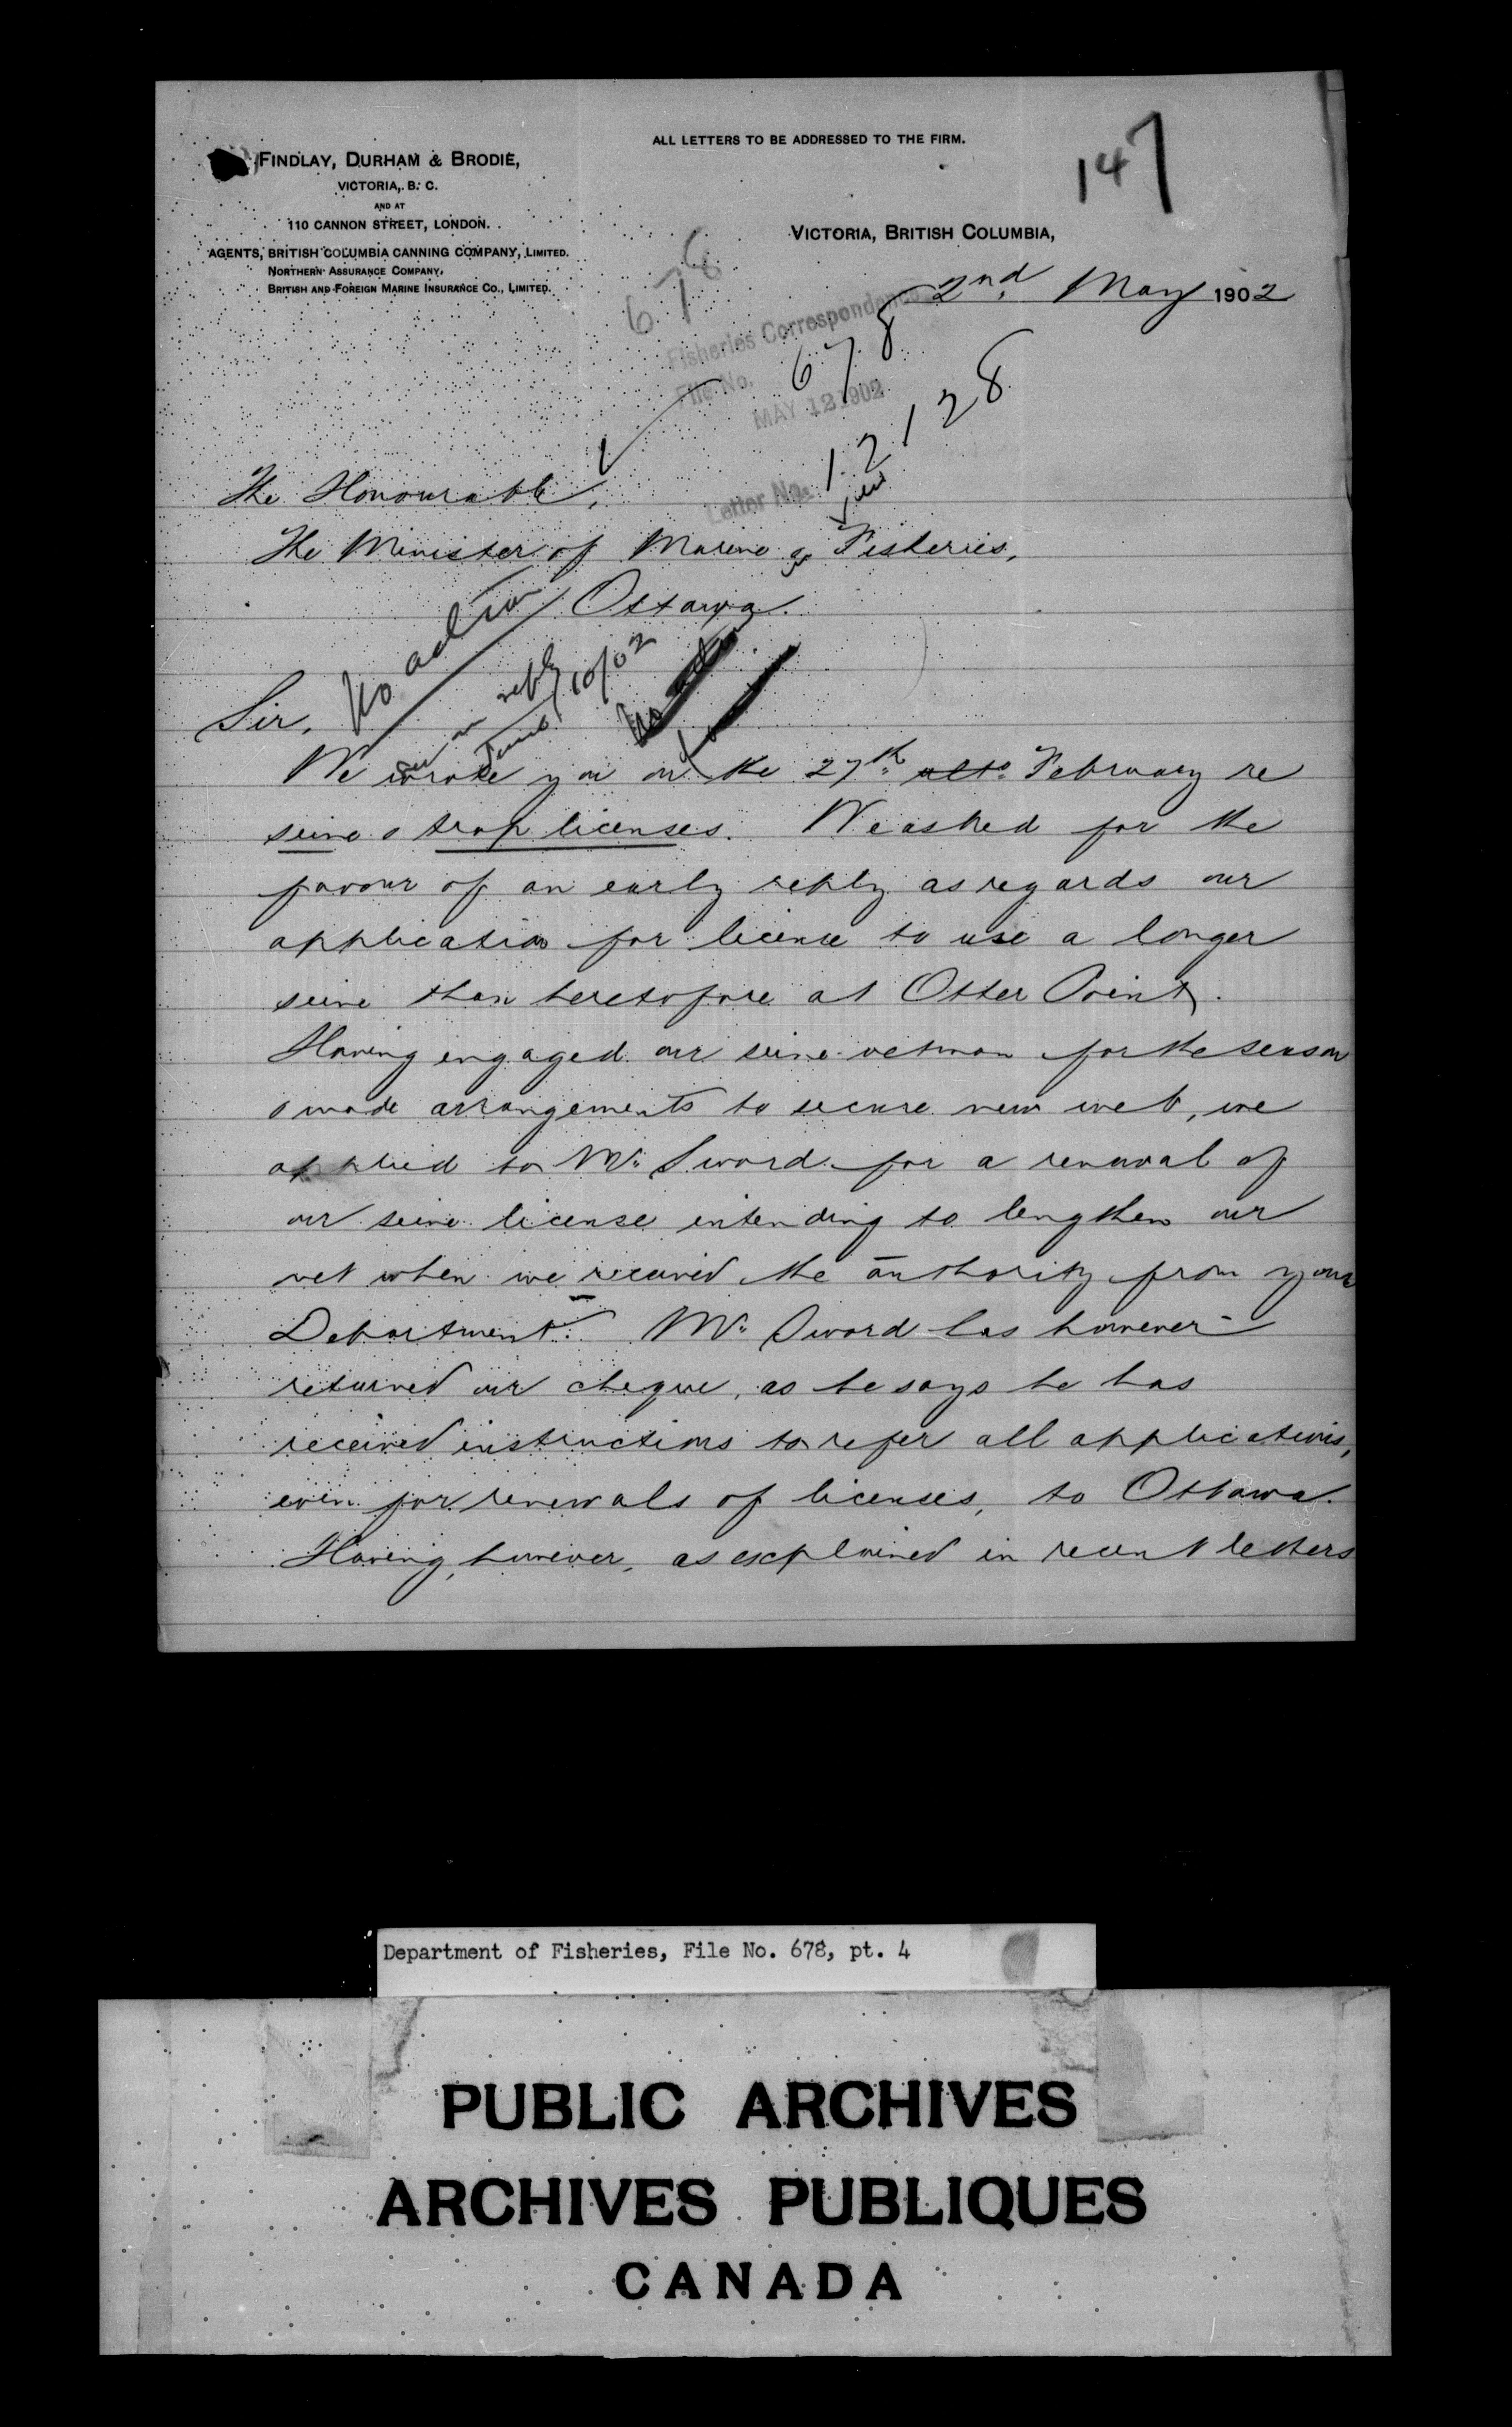 147
ALL LETTERS TO BE ADDRESSED TO THE FIRM.
FINDLAY, DURHAM & BRODIE,
VICTORIA, B. C.
AND AT
110 CANNON STREET, LONDON.
AGENTS, BRITISH COLUMBIA CANNING COMPANY, LIMITED.
NORTHERN ASSURANCE COMPANY,
BRITISH AND FOREIGN MARINE INSURANCE CO., LIMITED.
VICTORIA, BRITISH COLUMBIA,
2nd May 1902
678
Fisheries Correspondence
File No. 678
MAY 12 1902
Letter No. 12128
The Honourable,
The Minister of Marine & Fisheries,
Ottawa.
No action
reply
June 10/02
Sir,
We wrote you on the 27th ulto February re
seine & trap licenses. We asked for the
favour of an early reply as regards our
application for license to use a longer
seine than heretofore at Otter Point.
Having engaged our seine netman for the season
& made arrangements to secure new web, we
applied to Mr Sword for a renewal of
our seine license intending to lengthen our
net when we received the authority from your
Department. Mr Sword has however
returned our cheque, as he says he has
received instructions to refer all applications,
even for renewals of licenses, to Ottawa.
Having, however, as explained in recent letters
Department of Fisheries, File No. 678, pt. 4
PUBLIC ARCHIVES
ARCHIVES PUBLIQUES
CANADA